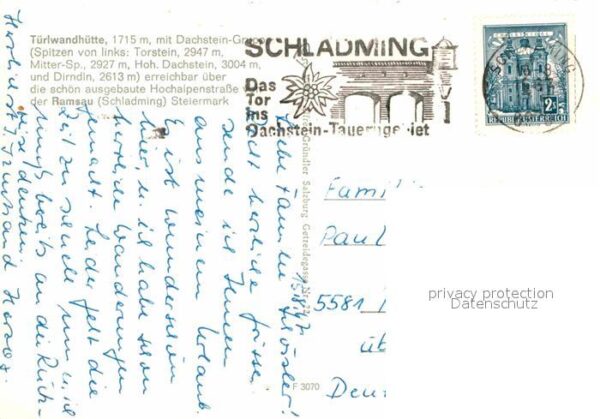 Türlwandhütte, 1715 m, mit Dachstein-Gruppe
(Spitzen von links: Torstein, 2947 m,
Mitter-Sp., 2927 m, Hoh. Dachstein, 3004 m,
und Dirndln, 2613 m) erreichbar über
die schön ausgebaute Hochalpenstraße
der Ramsau (Schladming) Steiermark
SCHLADMING
Das
Tor
ins
Dachstein-Tauerngebiet
2S
REPUBLIK ÖSTERREICH
Gründler Salzburg Getreidegasse
F 3070
Familie
recht herzliche Grüsse
sende ich Ihnen
aus meinem Urlaub.
Es ist wunderschön
hier, u. ich habe schon
Wanderungen
gemacht. Leider geht die
Zeit zu schnell um u. ich
muß bereits an die Rück-
reise denken.
Herzliebst
Paul
5581
üb
Deu
privacy protection
Datenschutz